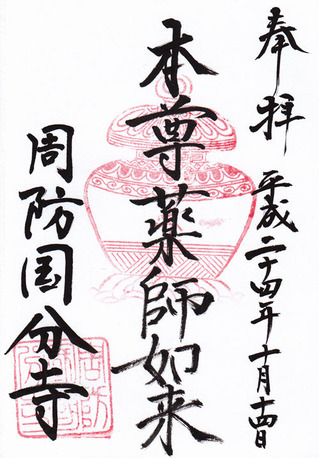 奉拝
平成二十四年十月十四日
本尊薬師如来
周防国分寺